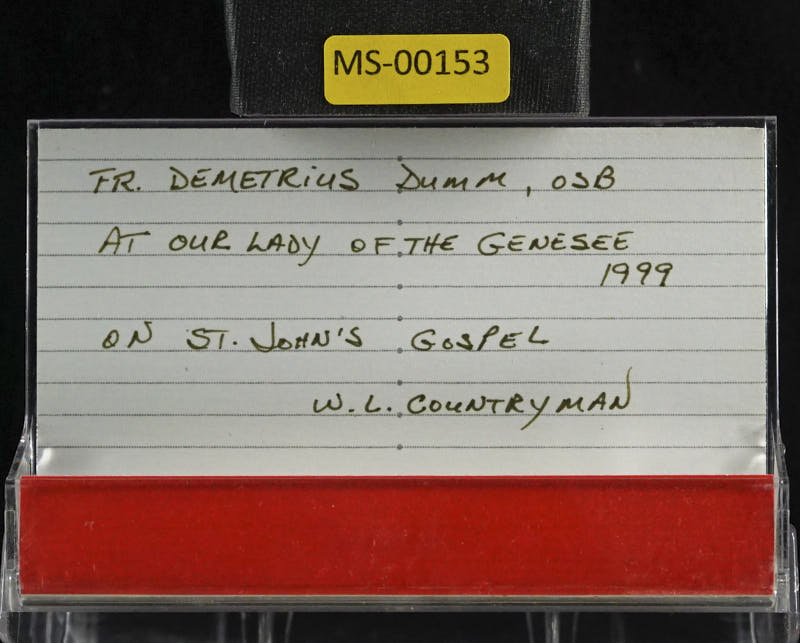 MS-00153
FR. DEMETRIUS DUMM, OSB
AT OUR LADY OF THE GENESEE
1999
ON ST. JOHN'S GOSPEL
W. L. COUNTRYMAN